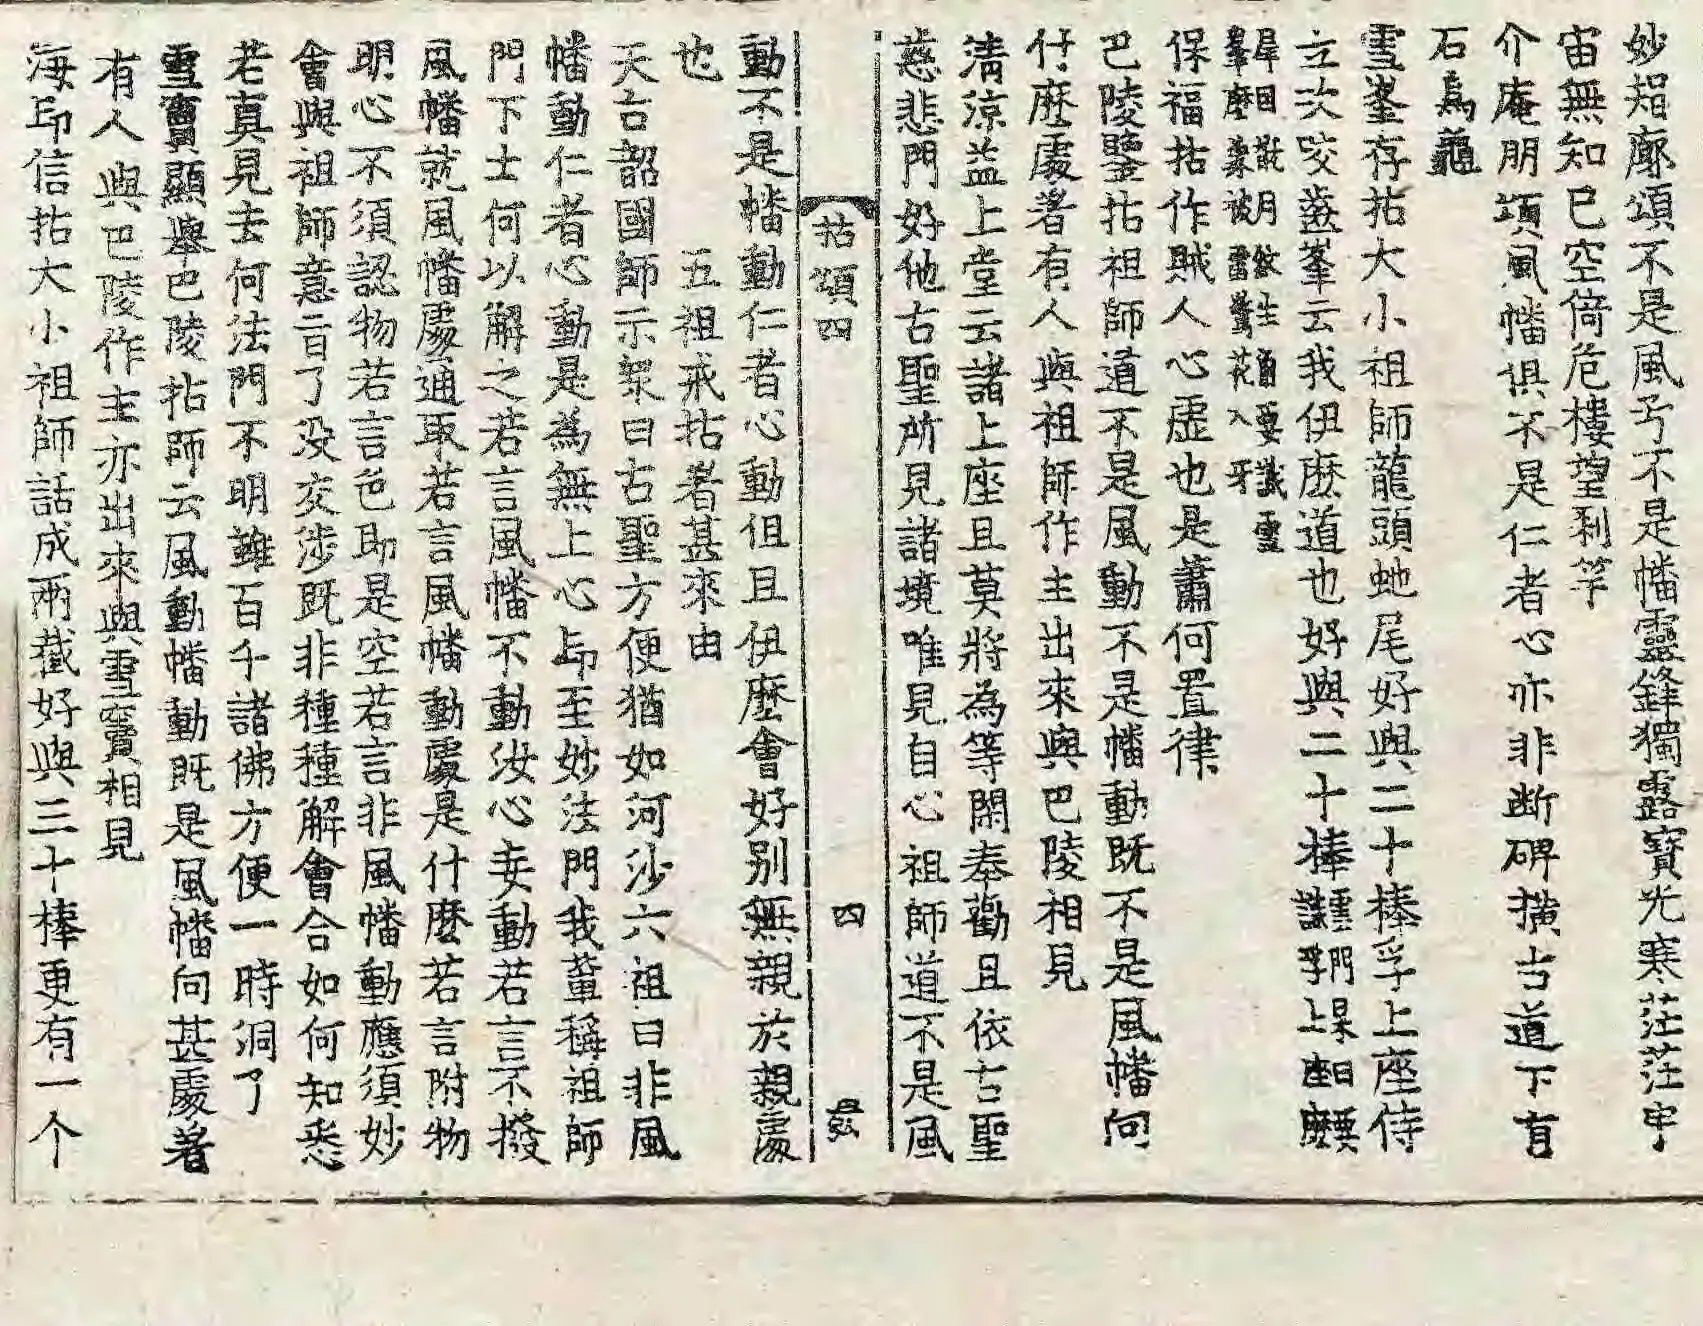 妙智廓頌不是風兮不是幡靈鋒獨露寶光寒茫茫宇
宙無知已空倚危樓望刹竿
介庵朋頌風幡俱不是仁者心亦非断碑撗古道下有
石烏龜
雪峯存拈大小祖師龍頭虵尾好與二十棒孚上座侍
立次咬齒峯云我伊麽道也好與二十棒
雲門杲曰要識孚上座麽
犀因翫月紋生角要識雪
峯麽象被雷驚花入牙
保福拈作賊人心虛也是蕭何置律
巴陵鑒拈祖師道不是風動不是幡動既不是風幡向
什麽處著有人與祖師作主出來與巴陵相見
清涼益上堂云諸上座且莫將為等閑奉勸且依古聖
慈悲門好他古聖所見諸境唯見自心祖師道不是風
拈頌四
四
動不是幡動仁者心動但且伊麽會好别無親於親處
也
五祖戒拈着甚來由
天台韶國師示衆曰古聖方便猶如河沙六祖曰非風
幡動仁者心動是為無上心印至妙法門我輩稱祖師
門下士何以解之若言風幡不動汝心妄動若言不撥
風幡就風幡處通取若言風幡動處是什麽若言附物
明心不須認物若言色即是空若言非風幡動應須妙
會與祖師意旨了没交涉既非種種解會合如何知悉
若真見去何法門不明雖百千諸佛方便一時洞了
雪竇顯舉巴陵拈師云風動幡動既是風幡向甚處著
有人與巴陵作主亦出來與雪竇相見
海印信拈大小祖師話成兩截好與三十棒更有一个